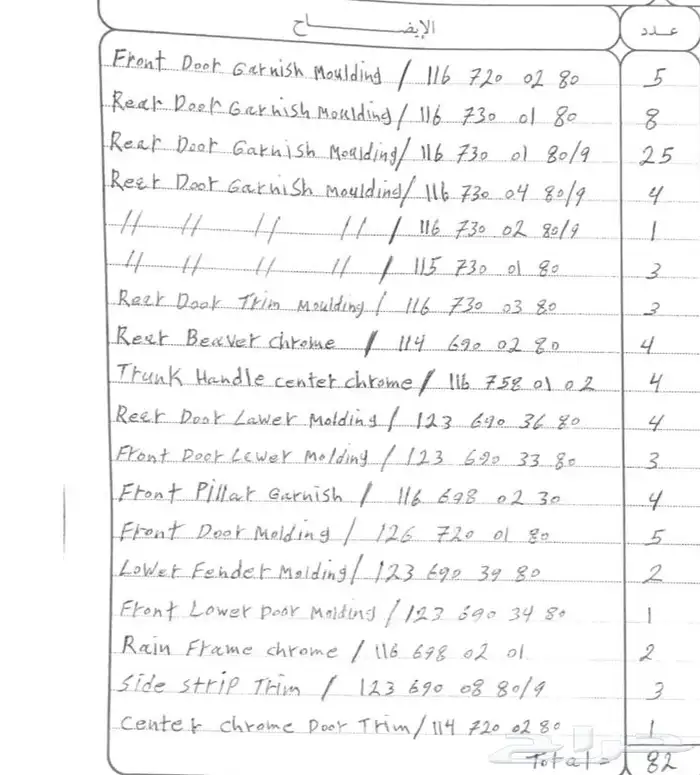 الإيضــــاح عدد
Front Door Garnish Moulding / 116 720 02 80 5
Rear Door Garnish Moulding / 116 730 01 80 8
Rear Door Garnish Moulding / 116 730 01 80/9 25
Rear Door Garnish Moulding / 116 730 04 80/9 4
// // // // / 116 730 02 80/9 1
// // // // / 115 730 01 80 3
Rear Door Trim Moulding / 116 730 03 80 3
Rear Beaver chrome / 114 690 02 80 4
Trunk Handle center chrome / 116 758 01 02 4
Reer Door Lawer Molding / 123 690 36 80 4
Front Door Lewer Molding / 123 690 33 80 3
Front Pillar Garnish / 116 698 02 30 4
Front Door Molding / 126 720 01 80 5
Lower Fender Molding / 123 690 39 80 2
Front Lower Door Molding / 123 690 34 80 1
Rain Frame chrome / 116 698 02 01 2
Side strip Trim / 123 690 08 80/9 3
Center chrome Door Trim / 114 720 02 80 1
Total = 82
حراج